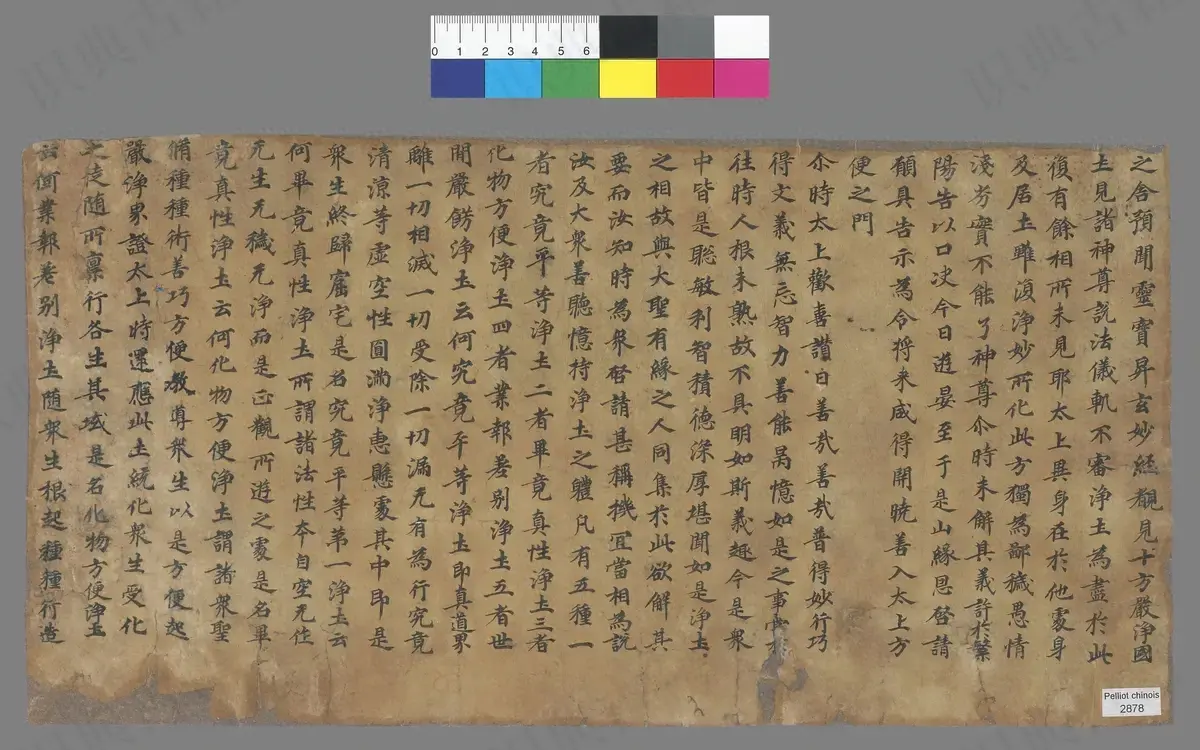 之舍預聞靈寶昇玄妙經覩見十方嚴淨國
土見諸神尊説法儀軌不審淨土為盡於此
復有餘相所未見耶太上異身在於他處身
及居土雖復淨妙所化此方獨為鄙穢愚情
淺劣實不能了神尊尒時未解其義許於繁
陽告以口决今日遊晏至于是山緣恩啓請
願具告示為令将来咸得開曉善入太上方
便之門
尒時太上歡喜讃曰善㦲善㦲普得妙行巧
得文義無忘智力善能昺憶如是之事當
往時人根未熟故不具明如斯義趣今是衆
中皆是聡敏利智積德深厚堪聞如是淨土
之相故與大聖有緣之人同集於此欲解其
要而汝知時為衆啓請甚稱機冝當相為説
汝及大衆善聽憶持淨土之體凡有五種一
者究竟平等淨土二者畢竟真性淨土三者
化物方便淨土四者業報差别淨土五者世
間嚴餝淨土云何究竟平等淨土即真道界
離一切相滅一切受除一切漏无有為行究竟
清涼等虚空性圓滿淨惠懸處其中即是
衆生終歸窟宅是名究竟平等苐一淨土云
何畢竟真性淨土所謂諸法性本自空无住
无生无穢无淨而是正觀所遊之處是名畢
竟真性淨土云何化物方便淨土謂諸衆聖
備種種術善巧方便教導衆生以是方便起
嚴淨界證太上時還應此土統化衆生受化
之徒随所禀行各生其域是名化物方便淨土
云何業報差别淨土随衆生根起種種行造
Pelliot chinois
2878
0 1 2 3 4 5 6